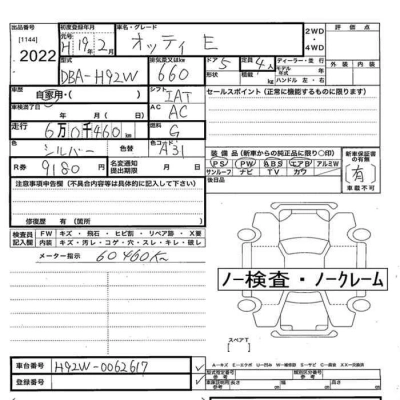 出品番号 初度登録年月 車名・グレード 評価点
[1144] 元号 H 19年 2月 オッティ E 2WD ・ 4WD
2022 型式 排気量又はkw ドア 定員 ディーラー・並行 外装 内装
DBA-H92W 660 5 4人 モデル年式 ハンドル 左・右
車歴 自家用・( ) シフト IAT セールスポイント(正常に機能するものに限ります)
車検満了日 年 月 AC AC
走行 6万0千460km 燃料 G
色 シルバー 色No. A31 装備品(新車からの純正品に限り○印) 新車保証書の有無
R券 9180円 名変通知提出期限 月 日 PS PW ABS エアB アルミW
サンルーフ ナビ TV カワ (有) 車載不可
注意事項申告欄(不具合内容等は具体的に記入して下さい) 後日品
修復歴 有(箇所 )
検査員記入欄 FW キズ・飛石・ヒビ割・リペア跡・X要
内装 キズ・汚レ・コゲ・穴・スレ・キレ・破レ
メーター指示 60460K
ノー検査・ノークレーム
スペアT
車台番号 H92W-0062617
登録番号
型式指定番号 類別区分番号
長さ cm 幅 cm 高さ cm